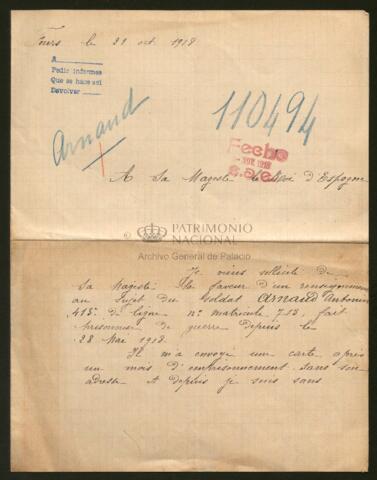 le 21 oct. 1918
A
Pedir informes
Que se hace así
Devolver
Arnaud
110494
Fecho
NOV. 1918
A Sa Majesté le Roi d'Espagne
PATRIMONIO
NACIONAL
Archivo General de Palacio
Je viens sollicité de
Sa Majesté la faveur d'un renseignement
au sujet du soldat Arnaud Antonin
415e de ligne n° matricule 713, fait
prisonnier de guerre depuis le
28 Mai 1918
Il m'a envoyé une carte après
un mois d'emprisonnement sans son
adresse et depuis je suis sans